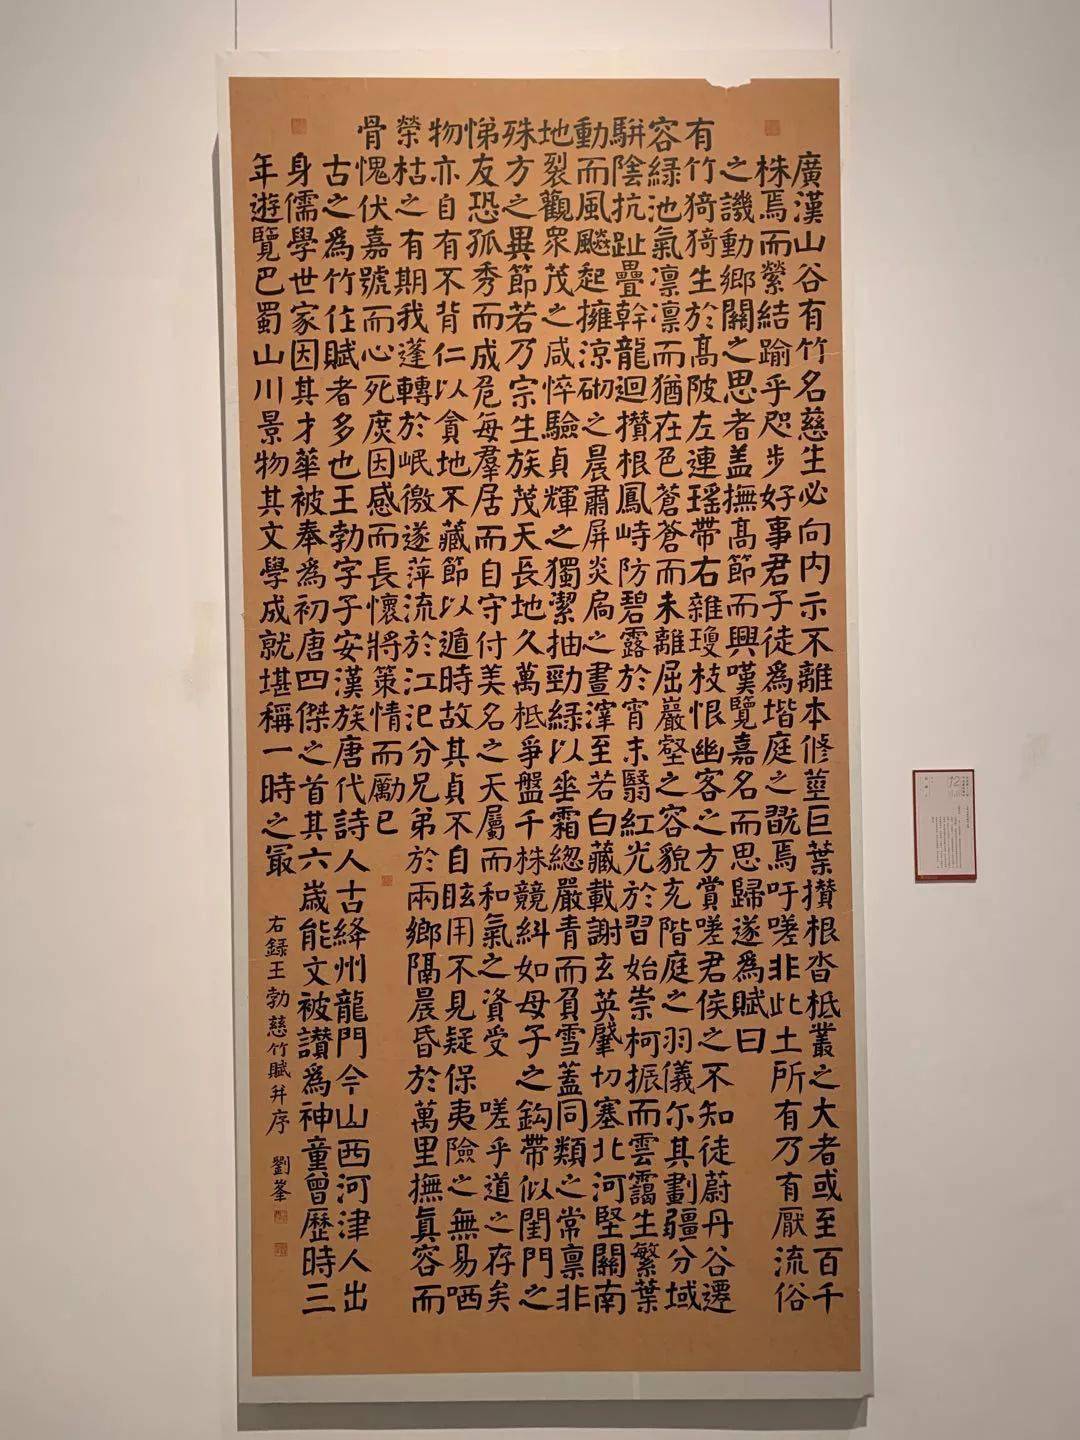 廣漢山谷有竹名慈生必向内示不離本修莖巨葉攅根沓柢叢之大者或至百千
株焉而縈結踰乎咫步好事君子徒為堦庭之翫焉吁嗟非此土所有乃有厭流俗
之譏動鄉關之思者盖撫髙節而興嘆覽嘉名而思歸遂為賦曰
有竹猗猗生於髙陂左連瑤帶右雜瓊枝恨幽客之方賞嗟君侯之不知徒蔚丹谷遷
容緑池氣凛凛而猶在色蒼蒼而未離屈巖壑之容貌充階庭之羽儀尔其劃疆分域
駢陰抗趾疊幹龍迴攅根鳳峙防碧露於宵末翳紅光於習始崇柯振而雲靄生繁葉
動而風飈起擁涼砌之晨肅屏炎扃之晝滓至若白藏載謝玄英肇切塞北河堅關南
地裂觀衆茂之咸悴驗貞輝之獨潔抽勁緑以垂霜緫嚴青而負雪蓋同類之常禀非
殊方之異節若乃宗生族茂天長地久萬柢爭盤千株競糾如母子之鈎帶似閨門之
悌友恐孤秀而成危每羣居而自守付美名之天屬而和氣之資受 嗟乎道之存矣
物亦自有不背仁以貪地不藏節以遁時故其貞不自眩用不見疑保夷險之無易哂
榮枯之有期我蓬轉於岷徼遂萍流於江汜分兄弟於兩鄉隔晨昏於萬里撫眞容而
骨愧伏嘉號而心死庹因感而長懷將策情而勵已
古之為竹作賦者多也王勃字子安漢族唐代詩人古絳州龍門今山西河津人出
身儒學世家因其才華被奉為初唐四傑之首其六嵗能文被讃為神童曾歷時三
年遊覽巴蜀山川景物其文學成就堪稱一時之㝡
右録王勃慈竹賦并序 劉峯